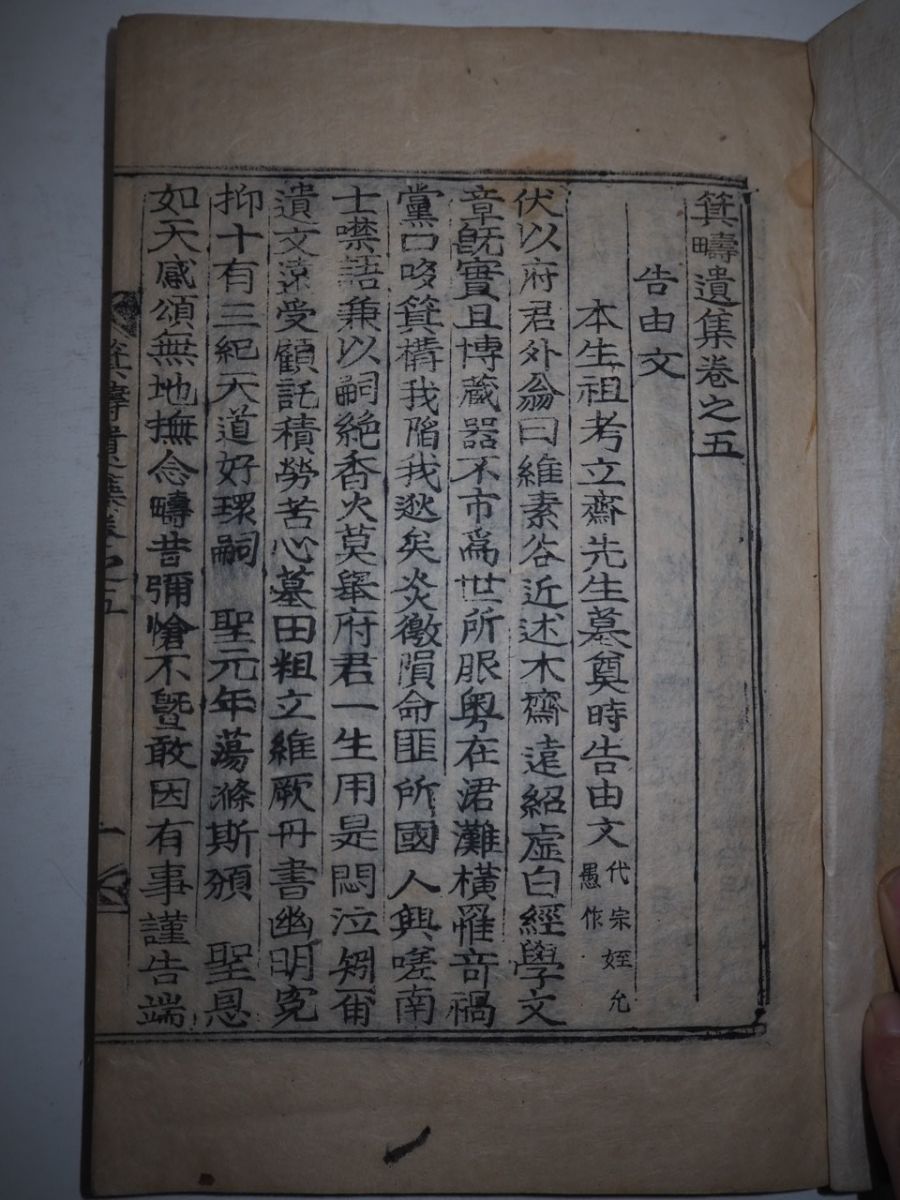 箕疇遺集卷之五
告由文
本生祖考立齋先生墓奠時告由文代宗姪允愚作
伏以府君外翁曰維素谷近述木齋遠紹虛白經學文
章旣實且博藏器不市爲世所服粤在涒灘橫罹奇禍
黨口哆箕構我陷我逖矣炎徼隕命匪所國人興嗟南
士噤語兼以嗣絶香火莫擧府君一生用是悶泣矧爾
遺文遠受顧託積勞苦心墓田粗立維厥丹書幽明寃
抑十有三紀天道好環嗣 聖元年蕩滌斯頒 聖恩
如天感頌無地撫念疇昔彌愴不曁敢因有事謹告端
箕疇遺集卷之五 一